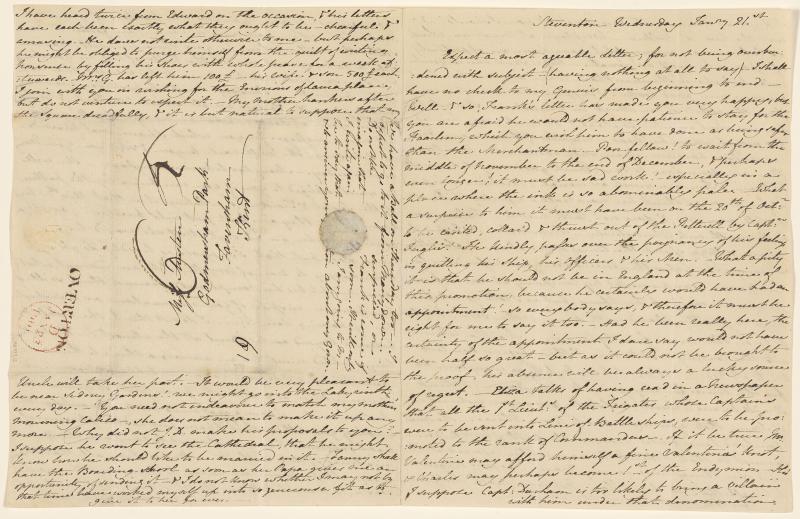 I have heard twice from Edward on the occasion, & his letters
have each been exactly what they ought to be - chearful &
amusing. - He dares not write otherwise to me - but perhaps
he might be obliged to purge himself from the guilt of writing
Nonsense by filling his shoes with whole pease for a week af-
terwards. - Mrs G. has left him 100£ - his wife & son 500£ each.
I join with you in wishing for the Environs of Laura place,
but do not venture to expect it. - My Mother hankers after
the Square dreadfully, & it is but natural to suppose that my
Miss Austen
Godmersham Park
Faversham
Kent
OVERTON
Uncle will take her part. - It would be very pleasant to
be near Sidney Gardens! - we might go into the Labyrinth
every day. - You need not endeavour to match my mother's
mourning Calico -, she does not mean to make it up any
more. - Why did not J. D. make his proposals to you?
I suppose he went to see the Cathedral, that he might
know how he should like to be married in it. - Fanny shall
have the Boarding School as soon as her Papa gives me an
opportunity of sending it - & I do not know whether I may not by
that time have worked myself up into so generous a fit as to
give it to her for ever.
Steventon - Wednesday Janry 21.st
Expect a most agreable Letter; for not being overbur-
dened with subject - (having nothing at all to say) - I shall
have no check to my Genius from beginning to end. -
Well - & so, Frank's letter has made you very happy, but
you are afraid he would not have patience to stay for the
Haarlem, which you wish him to have done as being safer
than the Merchantman. - Poor fellow! to wait from the
middle of November to the end of December, & perhaps
even longer! it must be sad work! - especially in a
place where the ink is so abominably pale. - What
a surprise to him it must have been on the 20th of Octr
to be visited, collar'd & thrust out of the Petterell by Captn
Inglis! - He kindly passes over the poignancy of his feelings
in quitting his Ship, his officers & his Men. - What a pity
it is that he should not be in England at the time of
this promotion, because he certainly would have had an
appointment! - so everybody says, & therefore it must be
right for me to say it too. - Had he been really here, the
certainty of the appointment I dare say would not have
been half so great - but as it could not be brought to
the proof, his absence will be always a lucky source
of regret. - Eliza talks of having read in a Newspaper
that all the 1st Lieuts of the Frigates whose Captains
were to be sent into Line-of-Battle ships, were to be pro-
moted to the rank of Commanders -. If it be true, Mr
Valentine may afford himself a fine Valentine's knot,
& Charles may perhaps become 1st of the Endymion - tho'
I suppose Capt: Durham is too likely to bring a villain
with him under that denomination